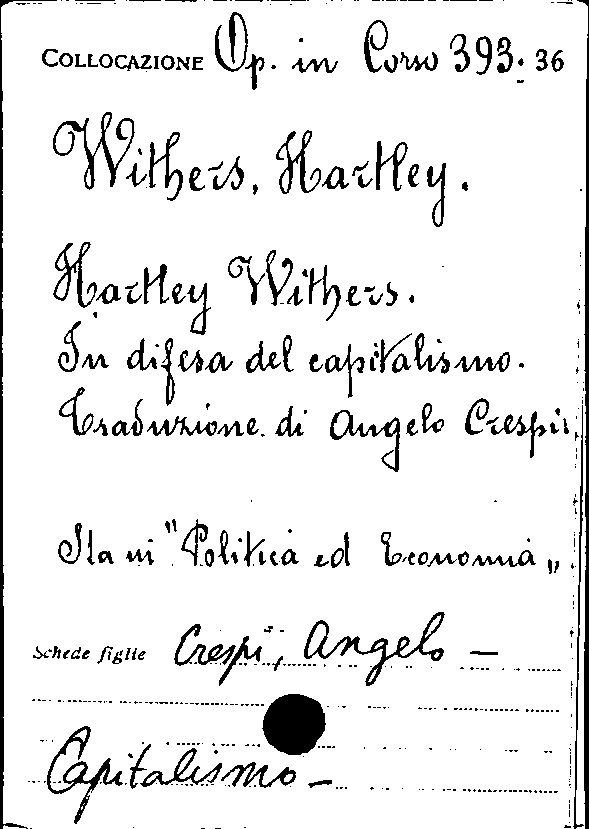 COLLOCAZIONE Op. in Corso 393.36
Withers, Hartley.
Hartley Withers.
In difesa del capitalismo.
Traduzione di Angelo Crespi,
Sta in "Politica ed Economia„
Schede figlie Crespi, Angelo —
Capitalismo —